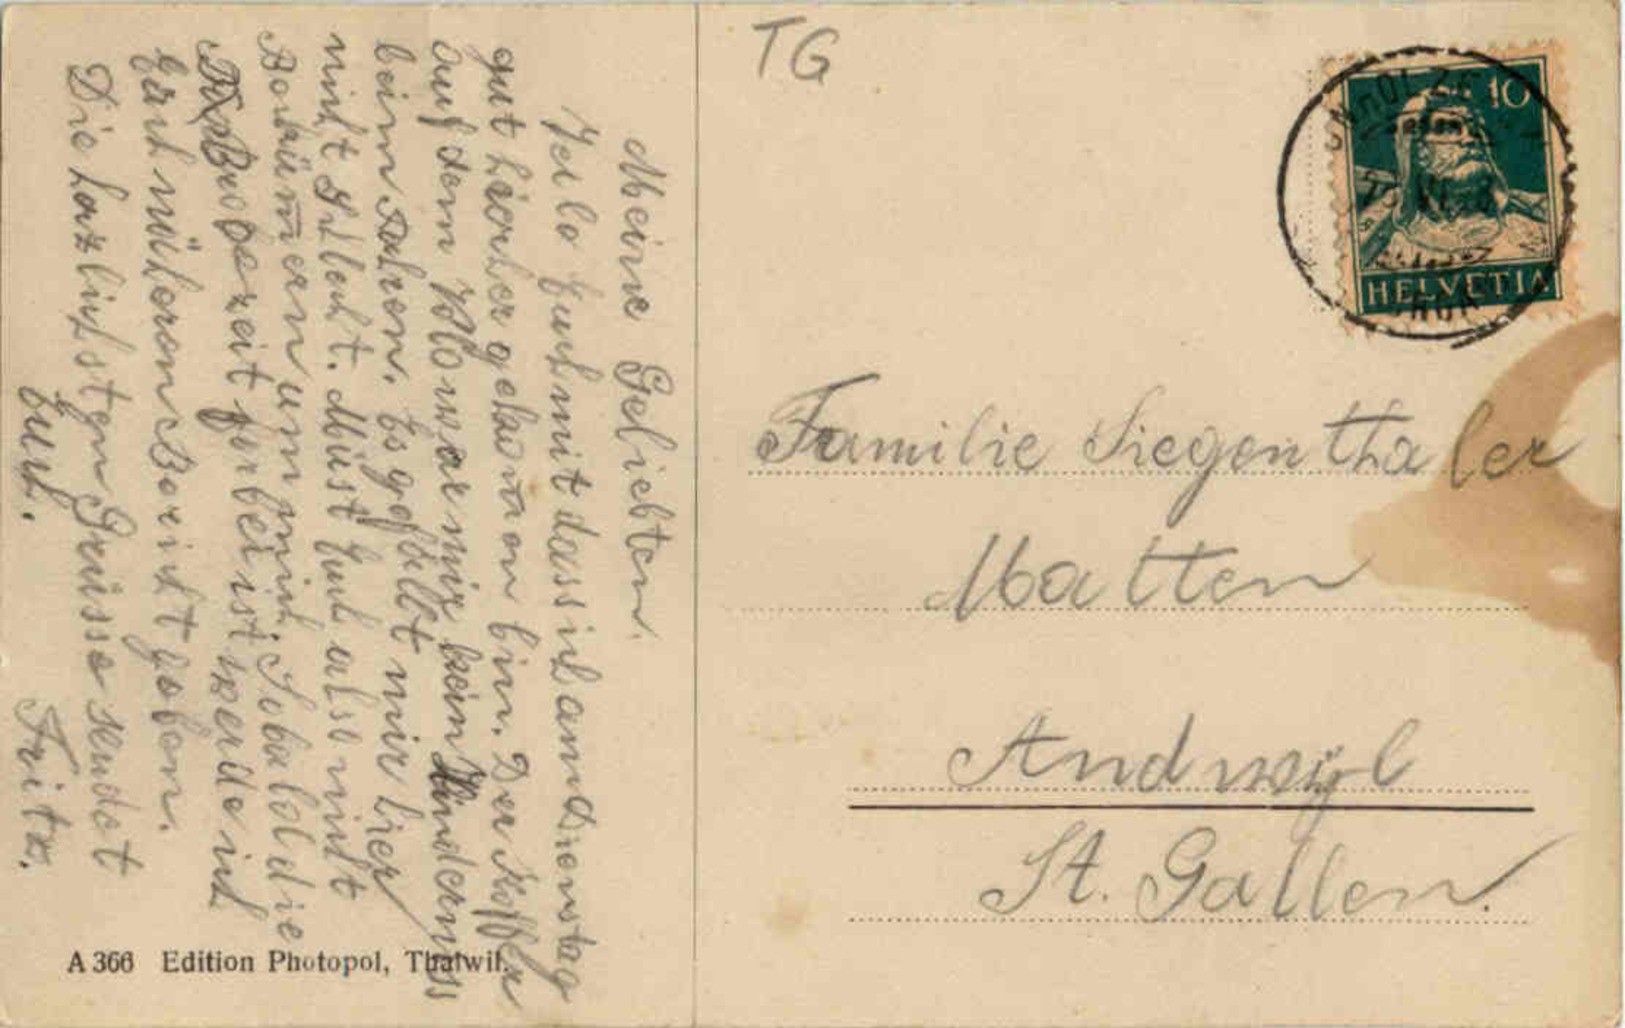 TG
10
HELVETIA
Familie Siegenthaler
Matten
Andwyl
St. Gallen.
Meine Geliebten.
Teile Euch mit dass ich am Dienstag
gut hierher gekom̅en bin. Der Koffer
auf dem Velo war mir kein Hindernis
beim Fahren. Es gefällt mir hier
nicht schlecht. Müsst Euch also nicht
Beküm̅ern um mich. Sobald die
Probezeit vorbei ist werde ich
Euch näheren Bericht geben.
Die herzlichsten Grüsse sendet
Euch.
Fritz.
A 366 Edition Photopol, Thalwil.